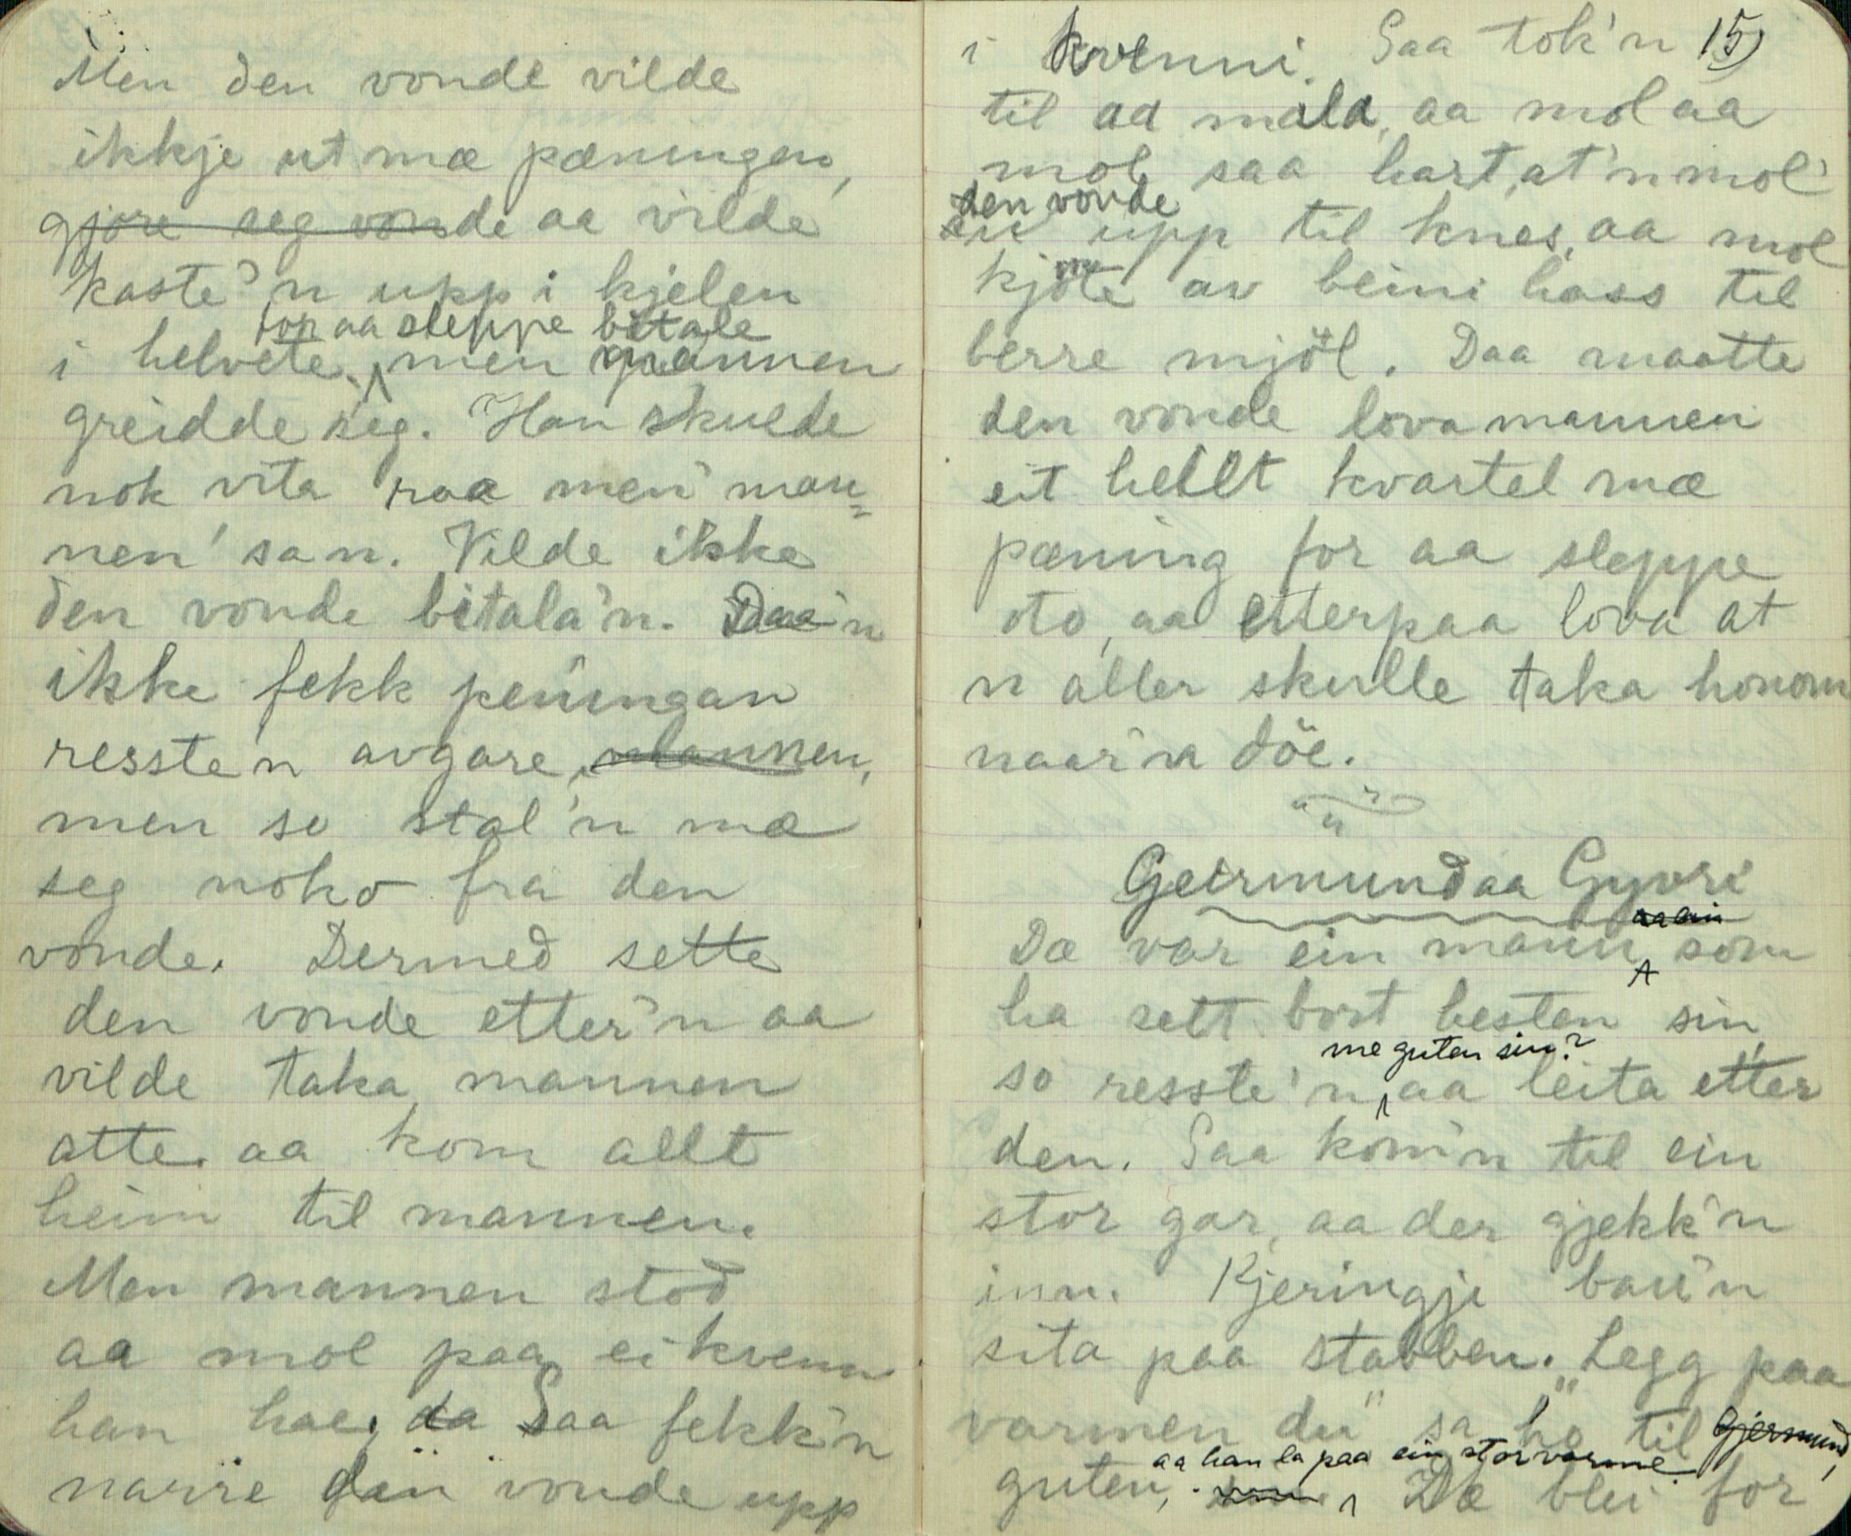 Men den vonde vilde
ikkje ut mæ pæningen,
gjøre seg vonde aa vilde
kaste'n upp i kjelen
for aa sleppe bitale
i helvete, men mannen
greidde seg. Han skulde
nok vita raa men' man=
nen' sa n. Vilde ikke
den vonde bitala'n. Daa'n
ikke fekk peningan
resste n avgare, mannen,
men so stal'n mæ
seg noko fra den
vonde. Dermed sette
den vonde etter'n aa
vilde taka mannen
atte. aa kom allt
heim til mannen.
Men mannen stod
aa mol paa ei kvenn
han hae, da Saa fekk'n
narre den vonde upp
i kvenni. Saa tok'n 15)
til aa mala, aa mol aa
mol saa hart, at'n mol'
den vonde
upp til knes, aa mol
kjöte av beini hass til
berre mjöl. Daa maatte
den vonde lova mannen
eit hellt kvartel mæ
pæning for aa sleppe
oto, aa etterpaa lova at
n aller skulle taka honom
naar'n döe.
Geirmund aa Gyvri
Dæ var ein mann aa ein som
ha sett bort hesten sin,
me guten sin?
so resste'n aa leita etter
den. Saa kom'n til ein
stor gar, aa der gjekk'n
inn. Kjeringji bau'n
sita paa stabben. "Legg paa
varmen du" sa ho til Gjermund,
aa han la paa ein stor varme.
guten, Dæ blei for